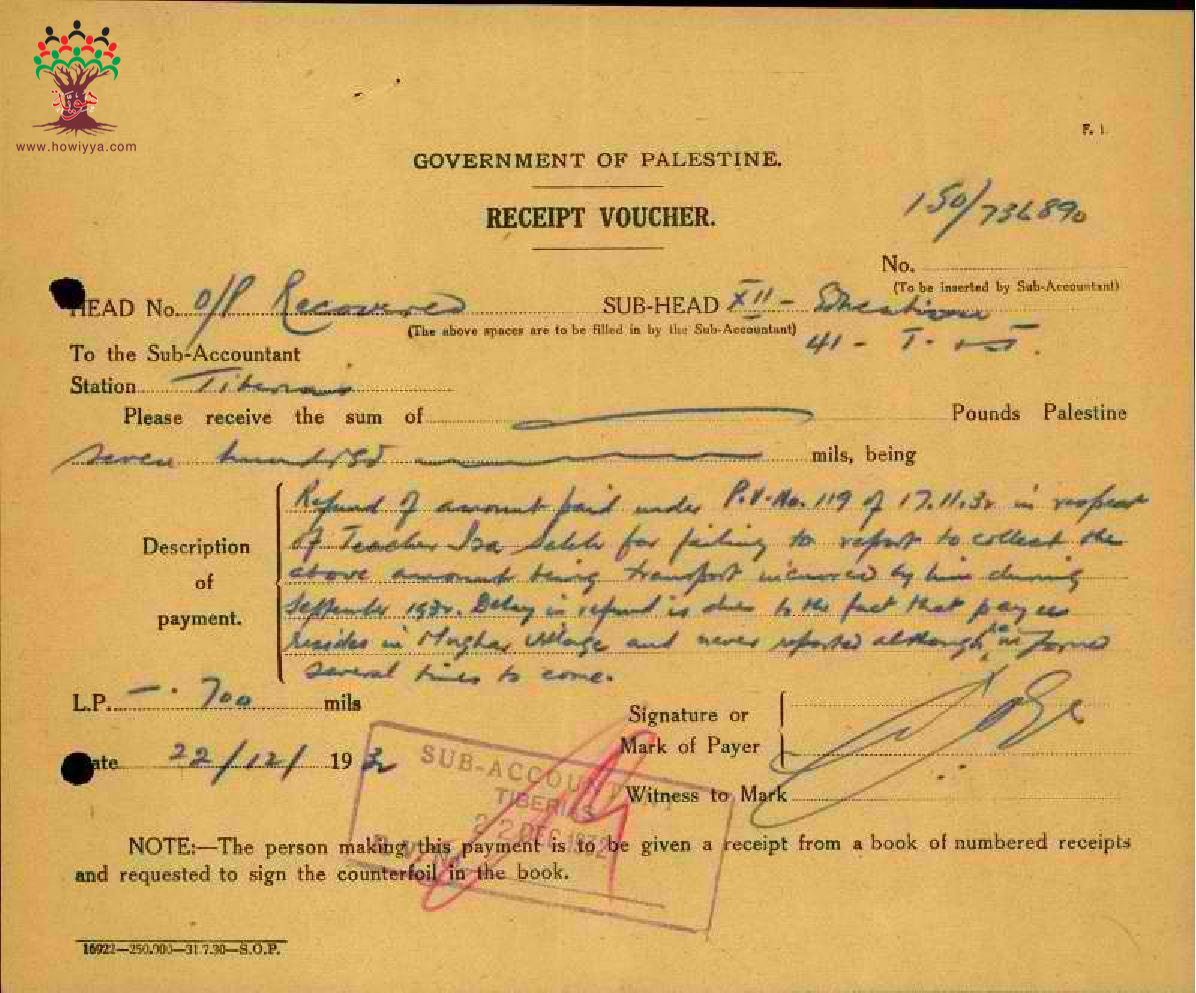 هوية
www.howiyya.com
F. 1.
GOVERNMENT OF PALESTINE.
RECEIPT VOUCHER.
150/736890
No.
(To be inserted by Sub-Accountant)
HEAD No. O/P Recovered SUB-HEAD XII - Education
(The above spaces are to be filled in by the Sub-Accountant)
41 - T.
To the Sub-Accountant
Station Tiberias
Please receive the sum of Pounds Palestine
seven hundred mils, being
Description of payment.
Refund of amount paid under P.V. No. 119 of 17.11.32 in respect
of Teacher Isa Saleh for failing to report to collect the
above amount being transport incurred by him during
September 1932. Delay in refund is due to the fact that payee
resides in Mughar Village and never reported although informed
several times to come.
L.P. —. 700 mils
Signature or
Mark of Payer
Date 22/12/ 1932
Witness to Mark
SUB-ACCOUNTANT
TIBERIAS
22 DEC 1932
NOTE:—The person making this payment is to be given a receipt from a book of numbered receipts
and requested to sign the counterfoil in the book.
16922—250.000—31.7.30—S.O.P.